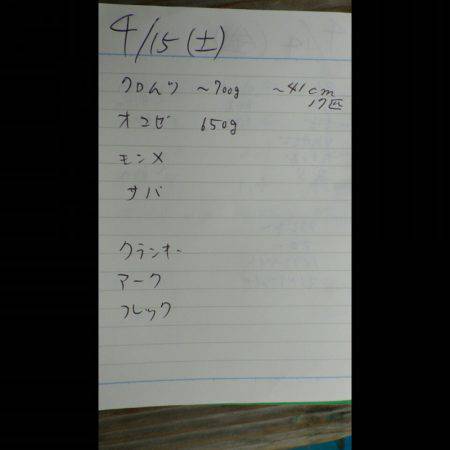 4/15(土)
クロムツ ~700g ~41cm
17匹
オコゼ 650g
モンメ
サバ
クランキー
アーク
フレック